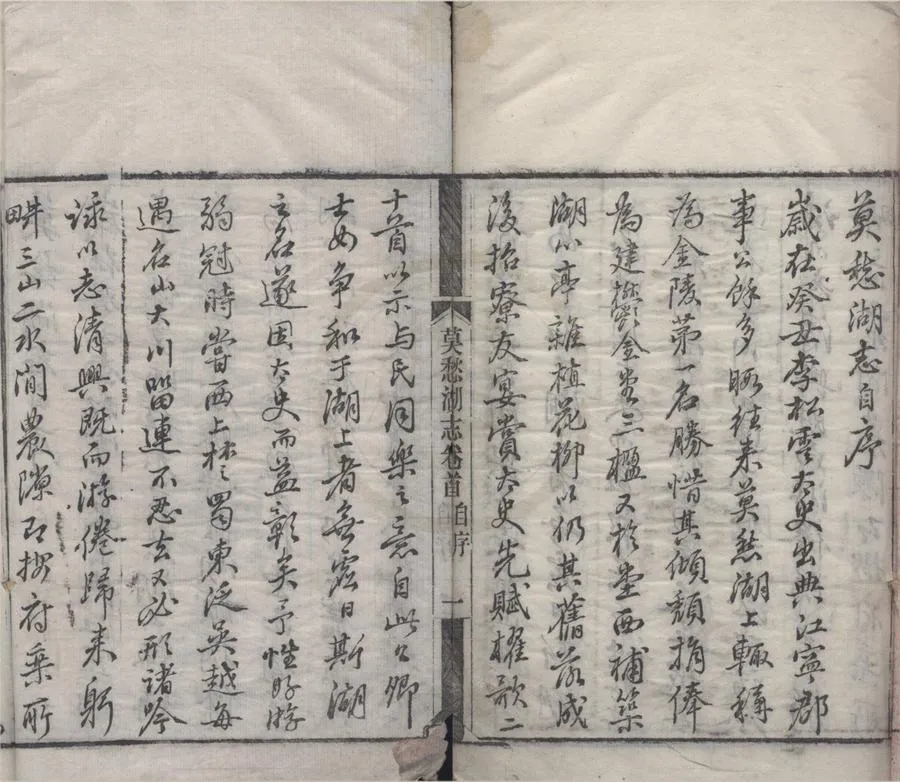 莫愁湖志自序
歲在癸丑李松雲太史出典江寧郡
事公餘多暇往来莫愁湖上輙稱
為金陵第一名勝惜其傾頹捐俸
為建鬱金堂三楹又於堂西補築
湖心亭雜植花柳以仍其舊落成
後招寮友宴賞太史先賦櫂歌二
莫愁湖志卷首 自序 一
十首以示与民同樂之意自此公卿
士女争和于湖上者無虛日斯湖
之名遂因太史而益彰矣予性好游
弱冠時嘗西上楚蜀東泛吳越每
遇名山大川留連不忍去又必形諸吟
詠以志清興既而游倦歸来躬
畊三山二水間農隙即撿府乘所